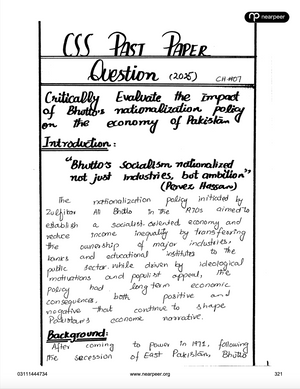 nearpeer
CSS PAST PAPER
Question (2025) CH#07
Critically Evaluate the impact
of Bhutto's nationalization policy
on the economy of Pakistan
Introduction:
"Bhutto's Socialism nationalized
not just industries, but ambition"
(Pervez Hassan)
The nationalization policy initiated by
Zulfikar Ali Bhutto in the 1970s aimed to
establish a socialist-oriented economy and
reduce income inequality by transferring
the ownership of major industries,
banks and educational institutes to the
public sector. While driven by ideological
motivations and populist appeal, the
policy had long-term economic
consequences, both positive and
negative that continue to shape
Pakistan's economic narrative.
Background:
After coming to power in 1971, following
the secession of East Pakistan, Bhutto
03111444734 www.nearpeer.org 321